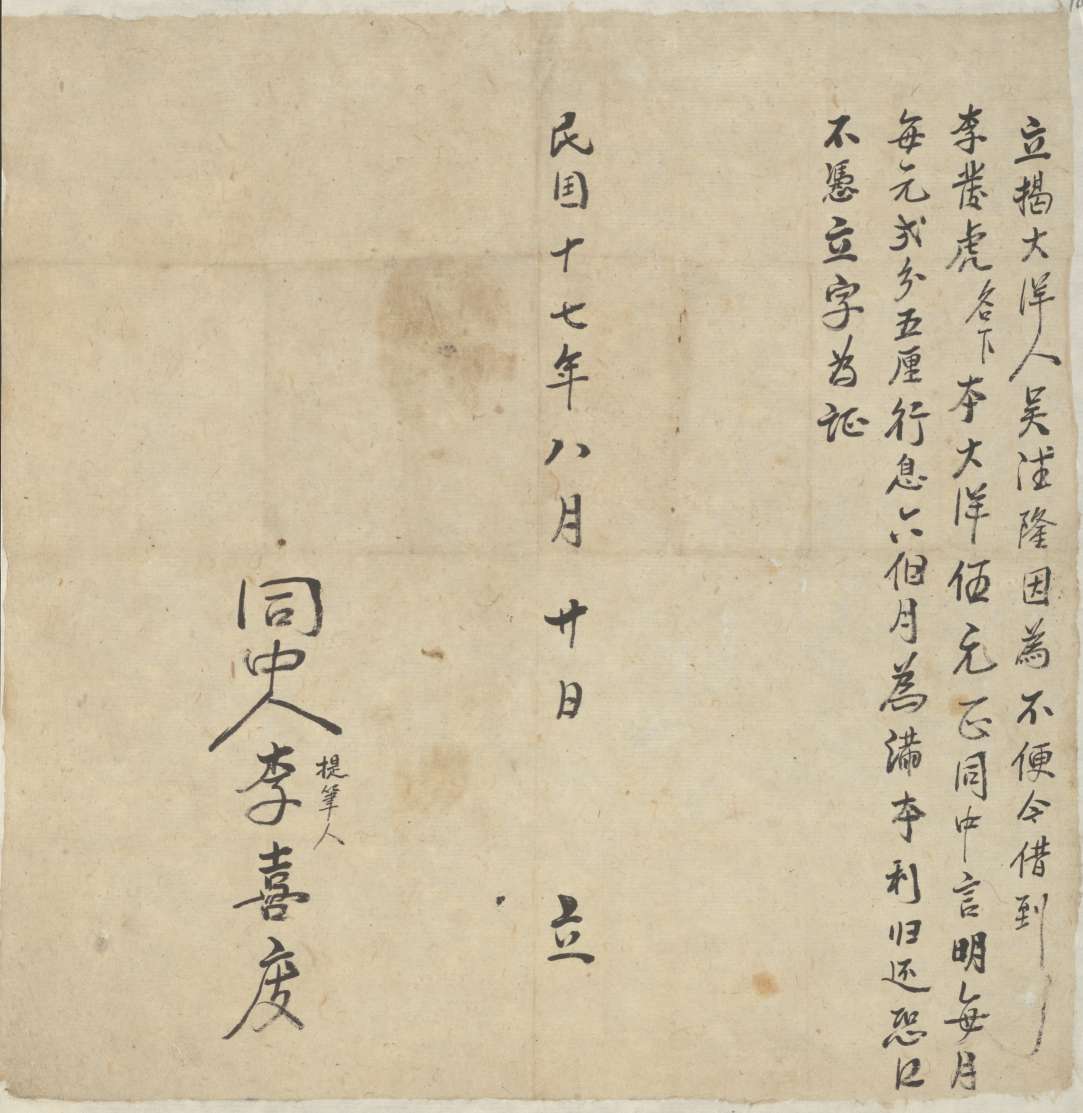 立揭大洋人吴法隆因為不便今借到
李發虎名下本大洋伍元正同中言明每月
每元弍分五厘行息六個月為滿本利归还恐口
不憑立字为証
民囯十七年八月廿日 立
提筆人
同中人李喜庆